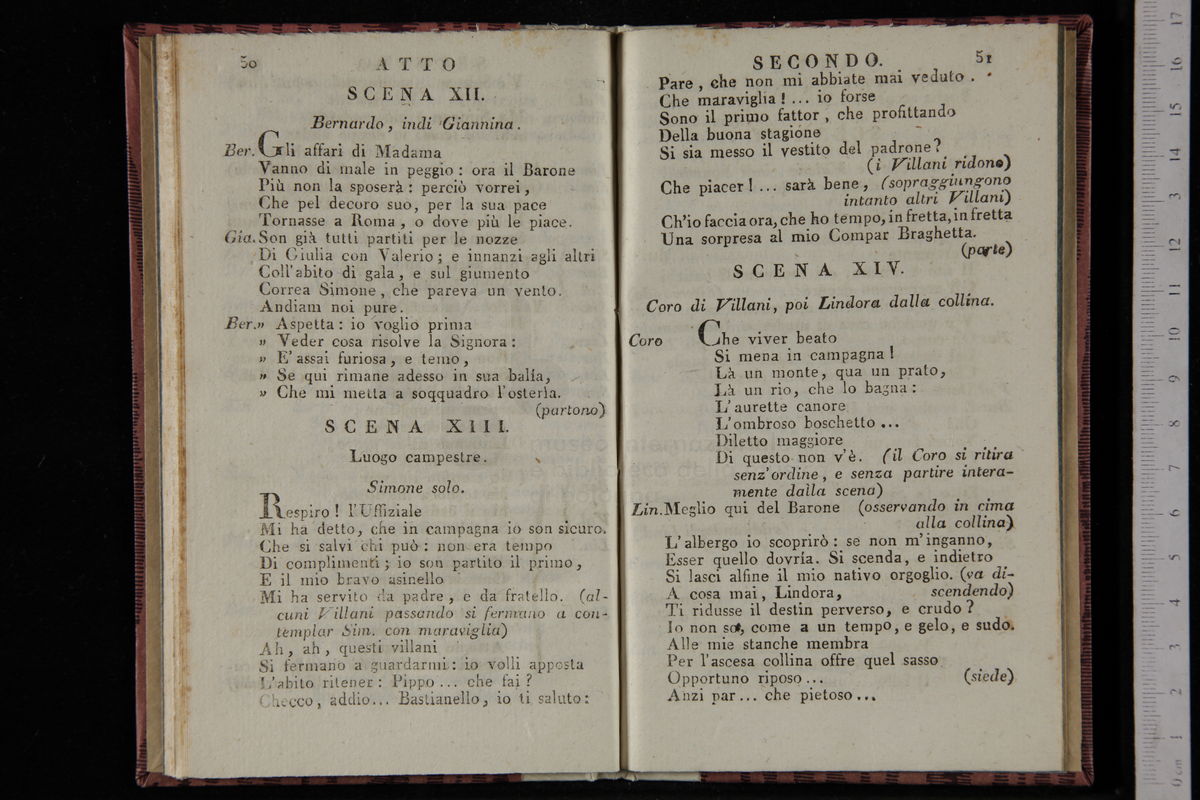 50 ATTO
SCENA XII.
Bernardo, indi Giannina.
Ber. Gli affari di Madama
Vanno di male in peggio: ora il Barone
Più non la sposerà: perciò vorrei,
Che pel decoro suo, per la sua pace
Tornasse a Roma, o dove più le piace.
Gia. Son già tutti partiti per le nozze
Di Giulia con Valerio; e innanzi agli altri
Coll'abito di gala, e sul giumento
Correa Simone, che pareva un vento.
Andiam noi pure.
Ber. » Aspetta: io voglio prima
» Veder cosa risolve la Signora:
» E' assai furiosa, e temo,
» Se qui rimane adesso in sua balía,
» Che mi metta a soqquadro l'osteria.
(partono)
SCENA XIII.
Luogo campestre.
Simone solo.
Respiro! l'Uffiziale
Mi ha detto, che in campagna io son sicuro.
Che si salvi chi può: non era tempo
Di complimenti; io son partito il primo,
E il mio bravo asinello
Mi ha servito da padre, e da fratello. (al-
cuni Villani passando si fermano a con-
templar Sim. con maraviglia)
Ah, ah, questi villani
Si fermano a guardarmi: io volli apposta
L'abito ritener: Pippo... che fai?
Checco, addio... Bastianello, io ti saluto:
SECONDO. 51
Pare, che non mi abbiate mai veduto.
Che maraviglia! ... io forse
Sono il primo fattor, che profittando
Della buona stagione
Si sia messo il vestito del padrone?
(i Villani ridono)
Che piacer! ... sarà bene, (sopraggiungono
intanto altri Villani)
Ch'io faccia ora, che ho tempo, in fretta, in fretta
Una sorpresa al mio Compar Braghetta.
(parte)
SCENA XIV.
Coro di Villani, poi Lindora dalla collina.
Coro Che viver beato
Si mena in campagna!
Là un monte, qua un prato,
Là un rio, che lo bagna:
L'aurette canore
L'ombroso boschetto...
Diletto maggiore
Di questo non v'è. (il Coro si ritira
senz'ordine, e senza partire intera-
mente dalla scena)
Lin. Meglio qui del Barone (osservando in cima
alla collina)
L'albergo io scoprirò: se non m'inganno,
Esser quello dovría. Si scenda, e indietro
Si lasci alfine il mio nativo orgoglio. (va di-
A cosa mai, Lindora, scendendo)
Ti ridusse il destin perverso, e crudo?
Io non so, come a un tempo, e gelo, e sudo.
Alle mie stanche membra
Per l'ascesa collina offre quel sasso
Opportuno riposo... (siede)
Anzi par... che pietoso...